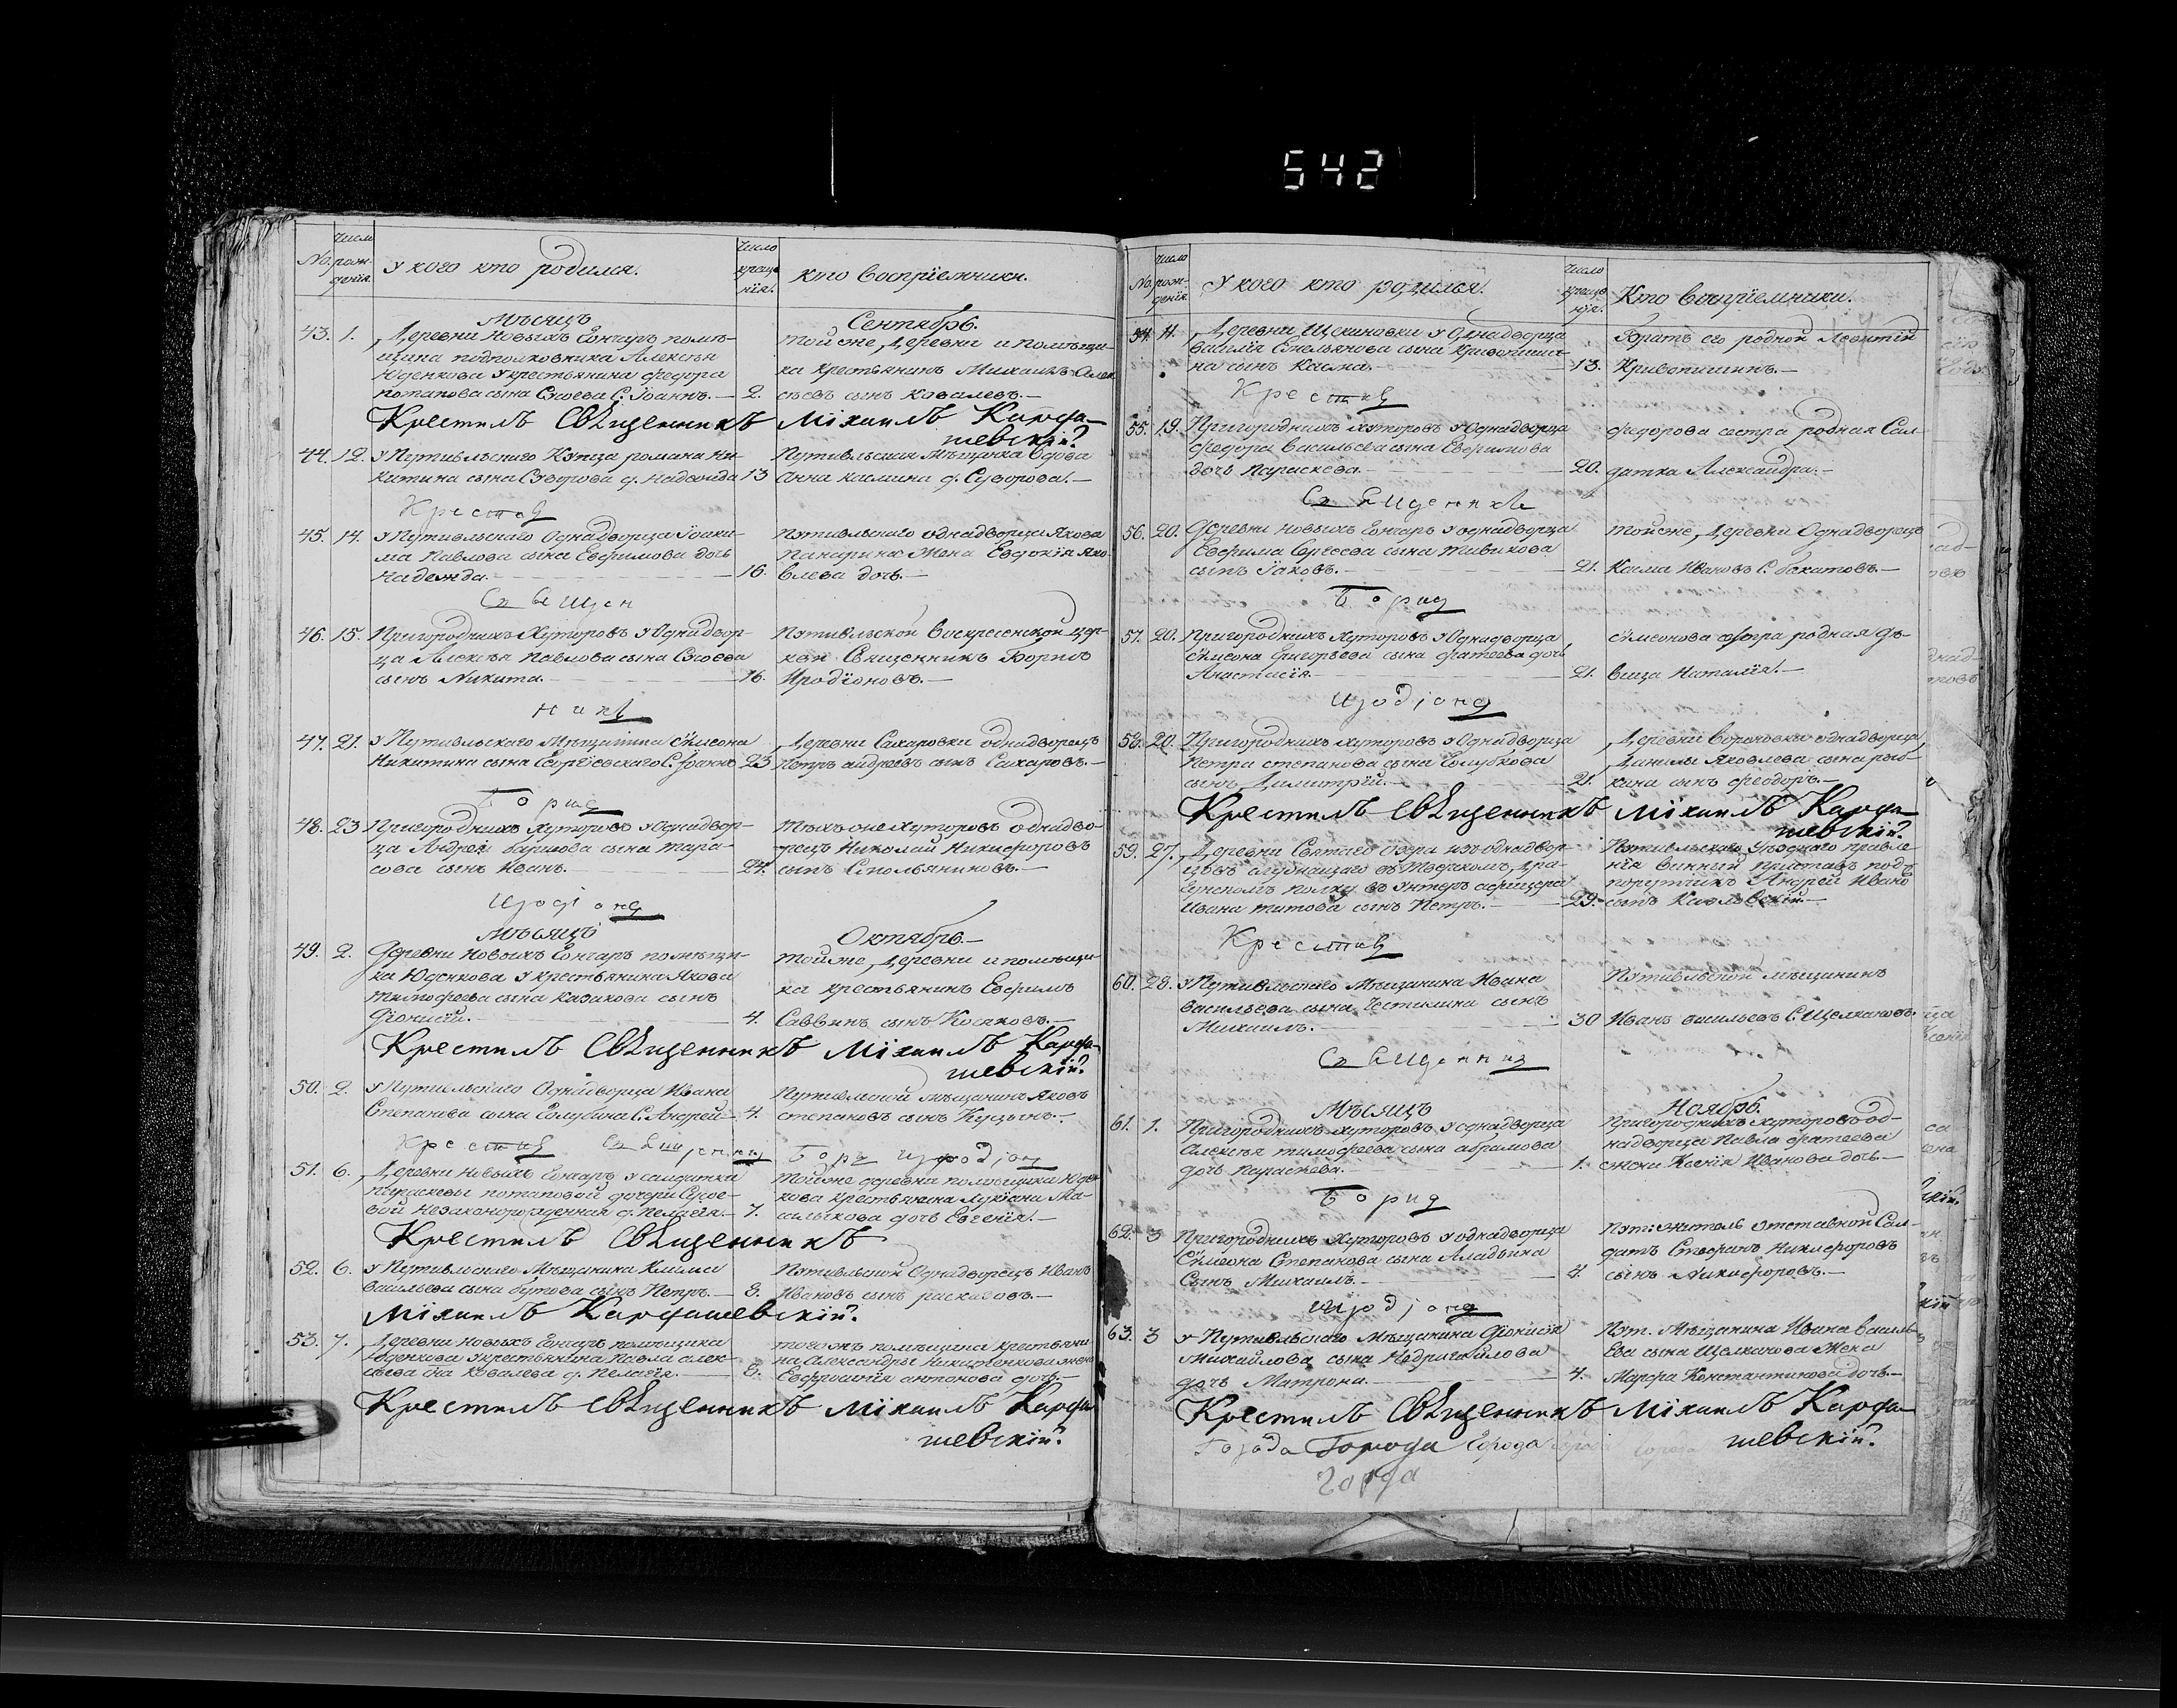 542
No.
Число рождения.
У кого кто родился.
Число крещения.
Кто восприемники.
Мѣсяцъ
Сентябрь.
43. 1. Деревни Новыхъ Гончаръ помѣ-
щика подполковника Алексѣя
Юденкова у крестьянина Федора
Потапова сына С. Іоаннъ. — 2.
Той же Деревни и помѣщи-
ка крестьянинъ Михаилъ Алек
сѣевъ сынъ Ковалевъ. —
Крестилъ Священникъ Міхаилъ Карда-
шевскій
44. 12. У Путивльскаго Купца Романа Ни-
китина сына Суворова д. Надежда 13
Путивльская Мѣщанка вдова
Анна Касмина д. Суворова. —
Крестил
45. 14. У Путивльскаго Однадворца Іоаки-
ма Павлова сына Евфимова дочь
Надежда. — 16.
Путивльскаго однадворца Якова
жена Евдокія Яко-
влева дочь. —
Священ
46. 15. Пригородныхъ Хуторовъ у Однадвор-
ца Алексѣя Павлова сына
сынъ Никита. — 16.
Путивльской Воскресенской цер-
кви Священникъ Борисъ
Иродіоновъ. —
никъ
47. 21. У Путивльскаго Мѣщанина Сімеона
Никитина сына Георгіевскаго С. Іоаннъ 23
Деревни Сахаровки однадворецъ
Петръ Андреевъ сынъ Сахаровъ. —
Борис
48. 23 Пригородныхъ Хуторовъ у Однадвор-
ца Андрея сына Тара-
сова сынъ Иванъ. — 24.
Тѣхъ же хуторовъ однадво-
рецъ Николай Никифоровъ
сынъ Стольяниковъ. —
Иродіонов
Мѣсяцъ
Октябрь. —
49. 2. Деревни Новыхъ Гончаръ помѣщи-
ка Юденкова у крестьянина Якова
Тимофеева сына Казакова сынъ
Діонисій. — 4.
Той же Деревни и помѣщи-
ка крестьянинъ Евфимъ
Саввинъ сынъ Косяковъ. —
Крестилъ Священникъ Міхаилъ Карда-
шевскій
50. 2. У Путивльскаго Однадворца Ивана
Степанова сына Голубина С. Андрей — 4.
Путивльской мѣщанинъ Яковъ
Степановъ сынъ Куцынъ. —
Крестил Священник Бори Иродіон
51. 6. Деревни Новыхъ Гончаръ у солдатки
Параскевы Потаповой дочери
вой незаконорожденная д. Пелагія. — 7.
Той же деревни помѣщика Юден
кова крестьянина Лукіана
дочь Евгенія. —
Крестилъ Священникъ
52. 6. У Путивльскаго Мѣщанина Клима
Васильева сына Бутова сынъ Петръ. — 8.
Путивльской Однадворецъ Иванъ
Ивановъ сынъ —
Міхаилъ Кардашевскій
53. 7. Деревни Новыхъ Гончаръ помѣщика
Юденкова у крестьянина Павла Алек-
сѣева С-на Ковалева д. Пелагія. — 8.
Того жъ помѣщика крестьяни-
на Александра жена
Евфросинія Антонова дочь. —
Крестилъ Священникъ Міхаилъ Карда
шевскій
No.
Число рождения
У кого кто родился.
Число крещения.
Кто восприемники.
54. 11. Деревни Щекиновки у Однадворца
Василія Емельянова сына Кривопиши-
на сынъ Касма. — 13.
Братъ его родной Леонтій
Кривопишинъ. —
Крестил
55. 19. Пригородныхъ хуторовъ у Однадворца
Федора Васильева сына Евфимова
дочь Параскева. — 20.
Федорова сестра родная Сал-
датка Александра. —
Священник
56. 20. Деревни Новыхъ Гончаръ у однадворца
Евфима Сергеева сына
сынъ Іаковъ. — 21.
Той же Деревни Однадворецъ
Касма Ивановъ С. —
Борис
57. 20. Пригородныхъ хуторовъ у Однадворца
Сімеона Григорьева сына Фатеева дочь
Анастасія. — 21.
Сімеонова сестра родная дѣ-
вица Наталія. —
Иродіонов
58. 20. Пригородныхъ хуторовъ у Однадворца
Петра Степанова сына Голубкова
сынъ Димитрій. — 21.
Деревни Вороновки однадворца
Данилы Яковлева сына Рыб-
кина сынъ Феодоръ. —
Крестилъ Священникъ Міхаилъ Карда-
шевскій
59. 27. Деревни Святаго Озера изъ однадвор-
цевъ служащаго въ Тверскомъ Дра-
гунскомъ полку въ унтеръ афицера
Ивана Титова сынъ Петръ. — 29.
Путивльскаго Уѣзднаго правле-
нія винный приставъ под-
порутчикъ Андрей Иванов
сынъ —
Крестил
60. 28. У Путивльскаго Мѣщанина Ивана
Васильева сына сынъ
Михаилъ. — 30
Путивльской мѣщанинъ
Иванъ Васильевъ С. Щелкановъ.
Священник
Мѣсяцъ
Ноябрь.
61. 1. Пригородныхъ хуторовъ у однадворца
Алексѣя Тимофеева сына Абрамова
дочь Параскева. — 1.
Пригородныхъ хуторовъ од-
надворца Павла Фатеева
жена Ксенія Иванова дочь. —
Борис
62. 3 Пригородныхъ Хуторовъ у однадворца
Сімеона Степанова сына Аладьина
Сынъ Михаилъ. — 4.
Пут: житель отставной Сал-
датъ Стефанъ Никифоровъ
сынъ Никифоровъ. —
Иродіонов
63. 3 У Путивльскаго Мѣщанина Діонисія
Михайлова сына Недригайлова
дочь Матрона. — 4.
Пут. Мѣщанина Ивана Василь-
ева сына Щелканова Жена
Марфа Константинова дочь. —
Крестилъ Священникъ Міхаилъ Карда-
шевскій
Города Города Города
города